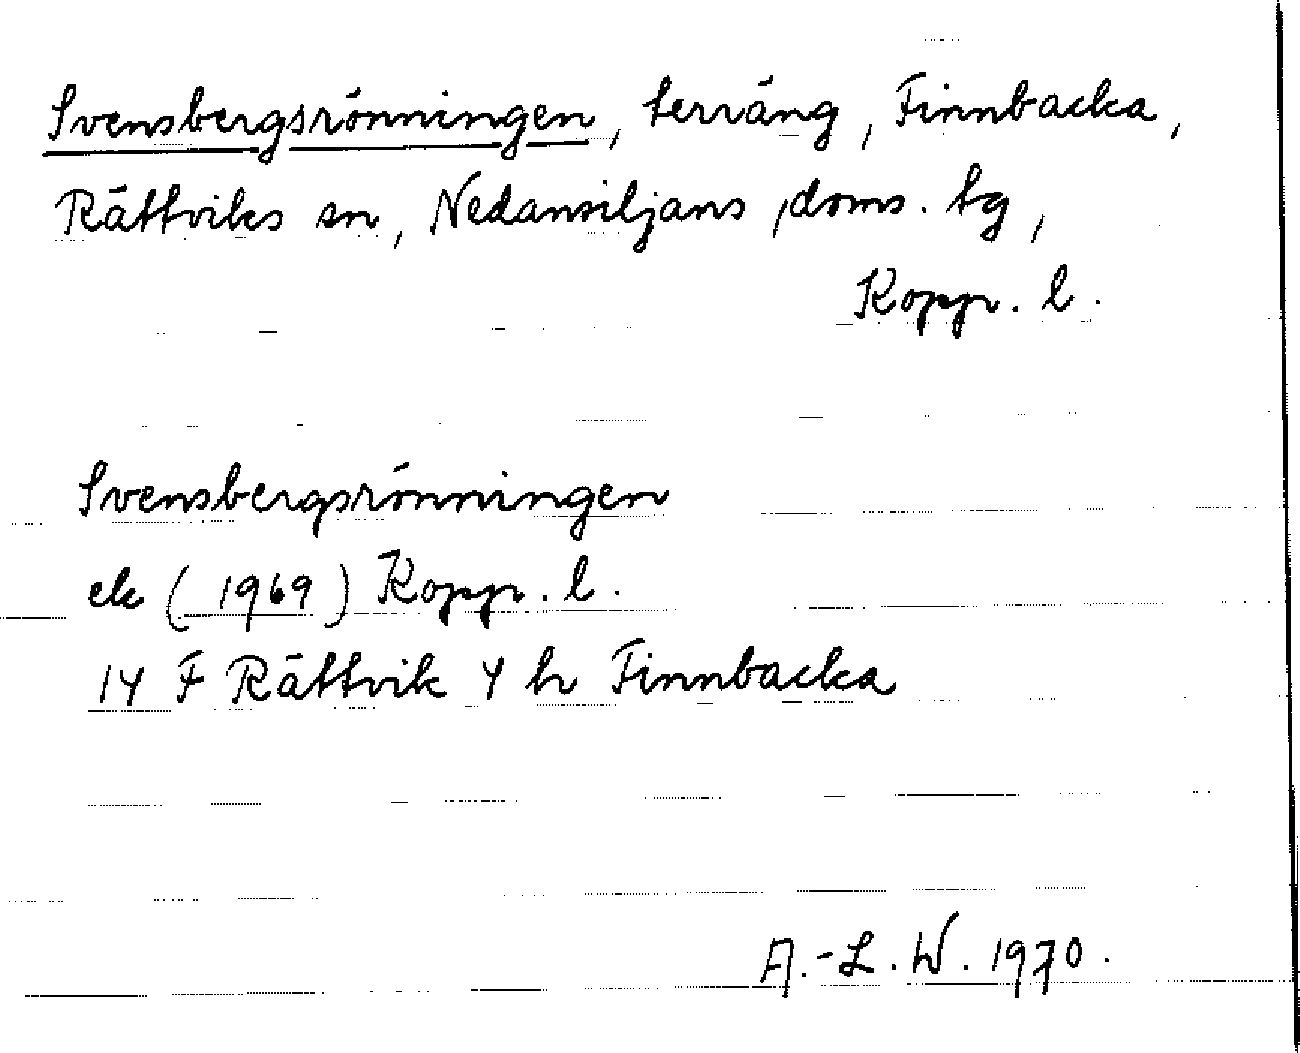 Svensbergsrönningen, terräng, Finnbacka,
Rättviks sn, Nedansiljans ,doms. tg,
Kopp. l.
Svensbergsrönningen
ek (1969) Kopp. l.
14 F Rättvik 4 h Finnbacka
A.-L. W. 1970.